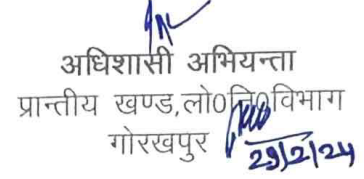 अधिशासी अभियन्ता
प्रान्तीय खण्ड,लो०नि०विभाग
गोरखपुर
29/2/24